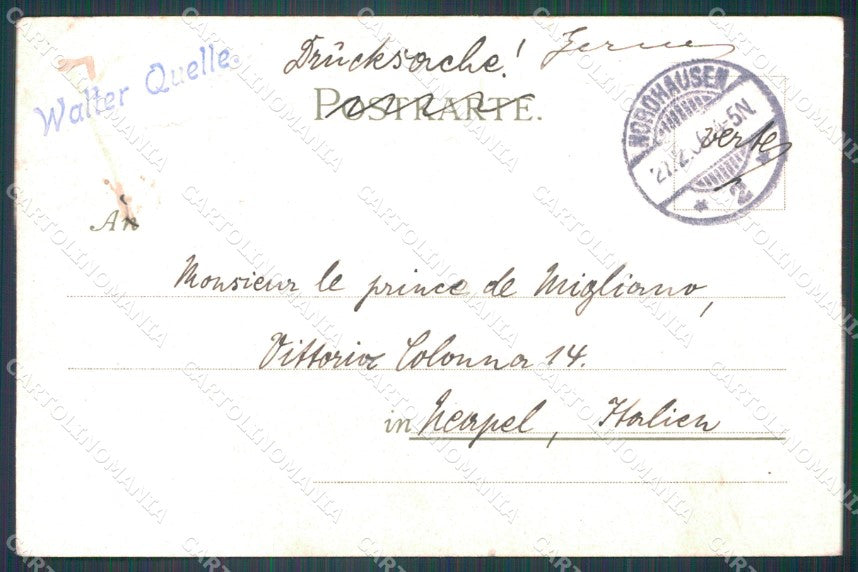 Walter Quelle.
Drücksache!
POSTKARTE.
NORDHAUSEN
-5N
verte
* 2 *
An
Monsieur le prince de Migliano,
Vittoria Colonna 14.
in Neapel, Italien
CARTOLINOMANIA